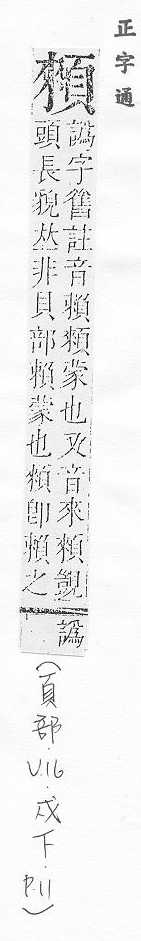 正字通
譌字舊註音賴頼蒙也又音來頼覶
頭長貌𠀤非貝部賴蒙也頼卽賴之
譌
(頁部.V.16.戌下.P.11)